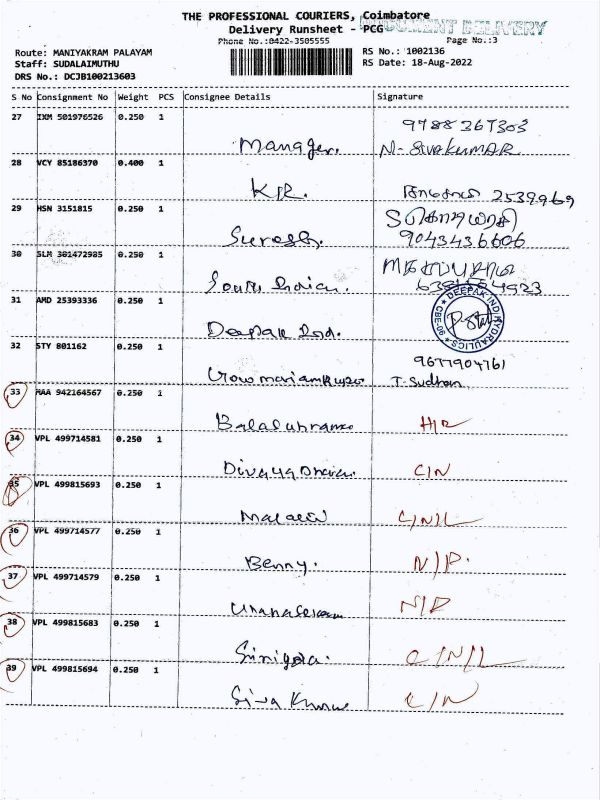 THE PROFESSIONAL COURIERS, Coimbatore
DOCUMENT DELIVERY
Delivery Runsheet - PCG
Phone No.:0422-3505555 Page No.:3
Route: MANIYAKRAM PALAYAM RS No.: 1002136
Staff: SUDALAIMUTHU RS Date: 18-Aug-2022
DRS No.: DCJB100213603
S No Consignment No Weight PCS Consignee Details Signature
27 IXM 501976526 0.250 1 9788367303
Manager. N-SivakUMAR
28 VCY 85186370 0.400 1
KR. 2539969
29 HSN 3151815 0.250 1
Suresh. 9043436606
30 SLM 301472985 0.250 1
South Indian.
31 AMD 25393336 0.250 1 DEEPAK IND HYDRAULICS
Deepak Ind.
32 STY 801162 0.250 1 9677904761
T-Sudhan
33 MAA 942164567 0.250 1
H/R
34 VPL 499714581 0.250 1
C/N
35 VPL 499815693 0.250 1
C/N/L
36 VPL 499714577 0.250 1
Benny. N/P.
37 VPL 499714579 0.250 1
38 VPL 499815683 0.250 1
C/N/L
39 VPL 499815694 0.250 1
Siva Kumar C/N